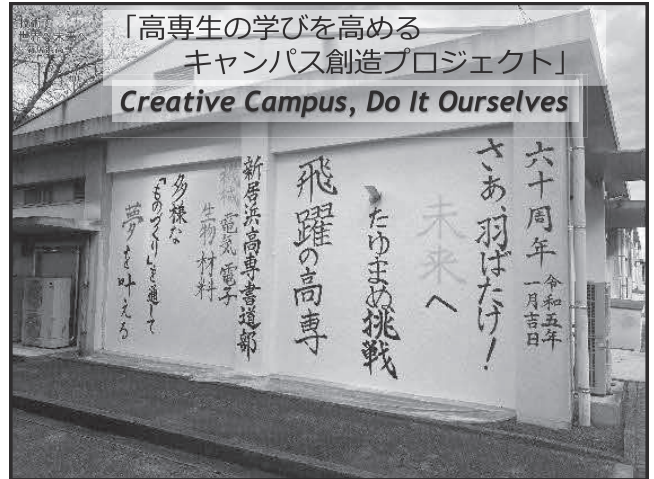 「高専生の学びを高める
キャンパス創造プロジェクト」
Creative Campus, Do It Ourselves
六十周年
令和五年
一月吉日
さあ、羽ばたけ!
未来へ
たゆまぬ挑戦
飛躍の高専
新居浜高専書道部
機械 電気 電子
生物 材料
多様な
「ものづくり」を通して
夢を叶える